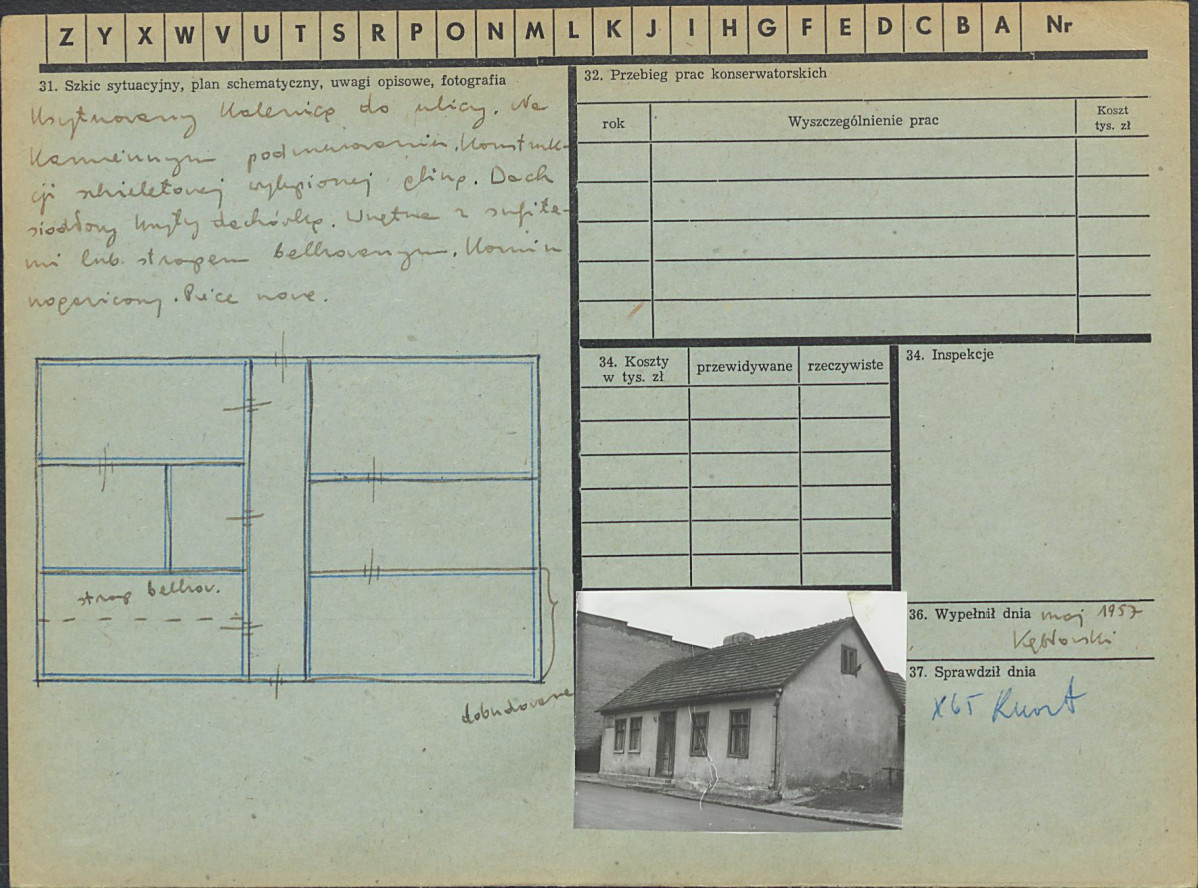 Z Y X W V U T S R P O N M L K J I H G F E D C B A Nr
31. Szkic sytuacyjny, plan schematyczny, uwagi opisowe, fotografia
Usytuowany kalenicą do ulicy. Na
kamiennym podmurowaniu. Konstruk-
cji szkieletowej wylepionej gliną. Dach
siodłowy kryty dachówką. Wnętrza z sufita-
mi lub stropem belkowanym. Komin
Piece nowe.
strop belkow.
dobudowane
32. Przebieg prac konserwatorskich
rok
Wyszczególnienie prac
Koszt
tys. zł
34. Koszty
w tys. zł
przewidywane
rzeczywiste
34. Inspekcje
36. Wypełnił dnia maj 1957
Kębłowski
37. Sprawdził dnia
X 65